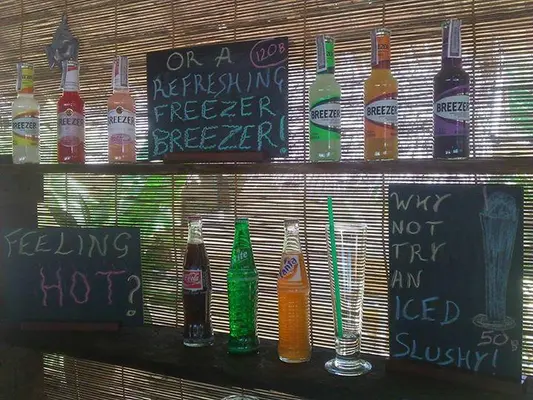 OR A 120B
REFRESHING
FREEZER
BREEZER!
BREEZER
BREEZER
BREEZER
BREEZER
BREEZER
BREEZER
FEELING
HOT?
Coca-Cola
Fanta
WHY
NOT
TRY
AN
ICED
SLUSHY!
50B